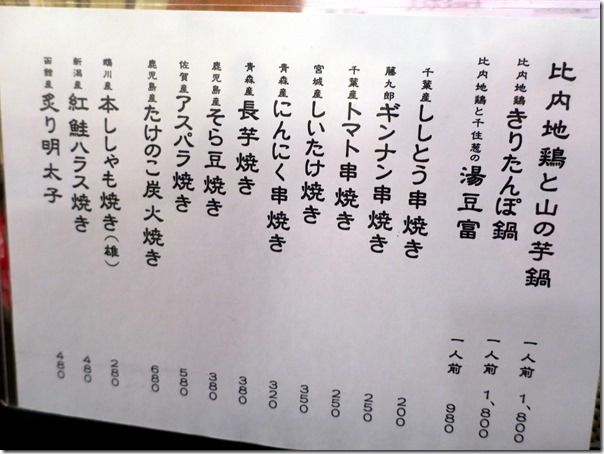 比内地鶏と山の芋鍋 一人前 1,800
比内地鶏 きりたんぽ鍋 一人前 1,800
比内地鶏と千住葱の 湯豆富 一人前 980
千葉産 ししとう串焼き 200
藤九郎 ギンナン串焼き 250
千葉産 トマト串焼き 250
宮城産 しいたけ焼き 350
青森産 にんにく串焼き 320
青森産 長芋焼き 380
鹿児島産 そら豆焼き 380
佐賀産 アスパラ焼き 580
鹿児島産 たけのこ炭火焼き 680
鵡川産 本ししゃも焼き(雄) 280
新潟産 紅鮭ハラス焼き 480
函館産 炙り明太子 480